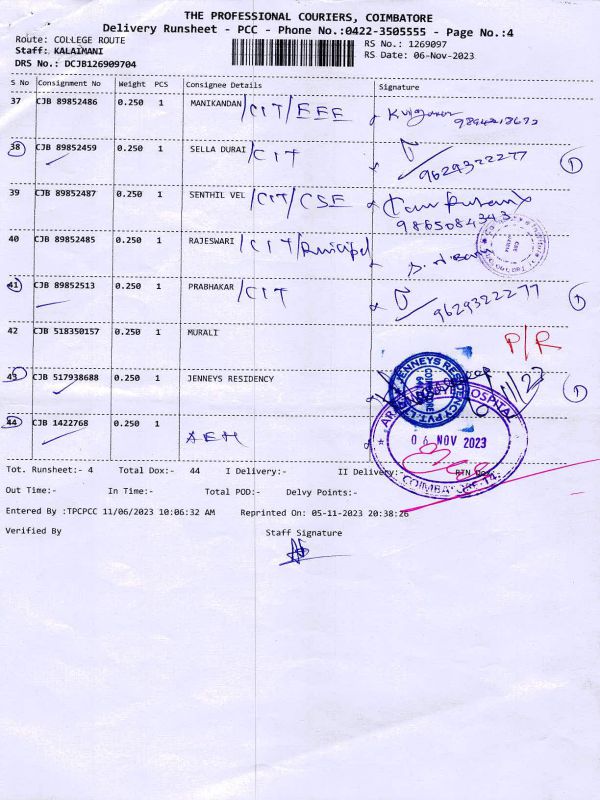 THE PROFESSIONAL COURIERS, COIMBATORE
Delivery Runsheet - PCC - Phone No.:0422-3505555 - Page No.:4
Route: COLLEGE ROUTE RS No.: 1269097
Staff: KALAIMANI RS Date: 06-Nov-2023
DRS No.: DCJB126909704
S No Consignment No Weight PCS Consignee Details Signature
37 CJB 89852486 0.250 1 MANIKANDAN /CIT/EEE
38 CJB 89852459 0.250 1 SELLA DURAI /CIT 9629322277 1
39 CJB 89852487 0.250 1 SENTHIL VEL /CIT/CSE
9865084343
40 CJB 89852485 0.250 1 RAJESWARI /CIT/
41 CJB 89852513 0.250 1 PRABHAKAR /CIT 9629322277 1
42 CJB 518350157 0.250 1 MURALI P/R
43 CJB 517938688 0.250 1 JENNEYS RESIDENCY 1
JENNEYS RESIDENCY PVT. LTD.
COIMBATORE
44 CJB 1422768 0.250 1 AEH
HOSPITAL
06 NOV 2023
COIMBATORE-14
Tot. Runsheet:- 4 Total Dox:- 44 I Delivery:- II Delivery:- RTN Dox
Out Time:- In Time:- Total POD:- Delvy Points:-
Entered By :TPCPCC 11/06/2023 10:06:32 AM Reprinted On: 05-11-2023 20:38:26
Verified By Staff Signature